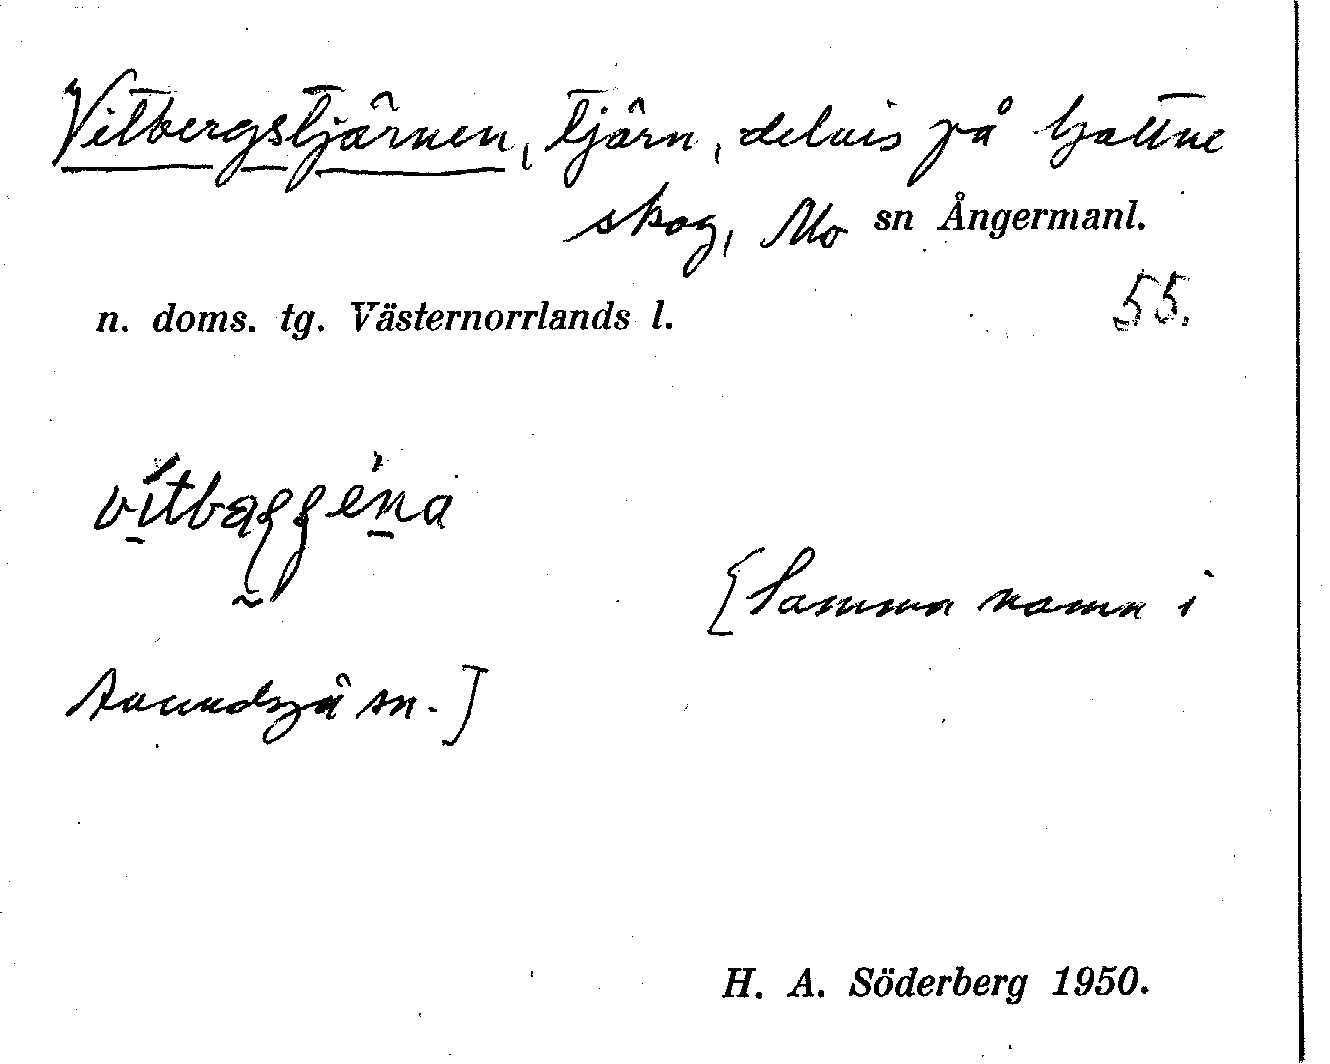 Vitbergstjärnen, tjärn, delvis på Gattne
skog, Mo sn Ångermanl.
n. doms. tg. Västernorrlands l. 55.
[Samma namn i
Anundsjö sn.]
H. A. Söderberg 1950.